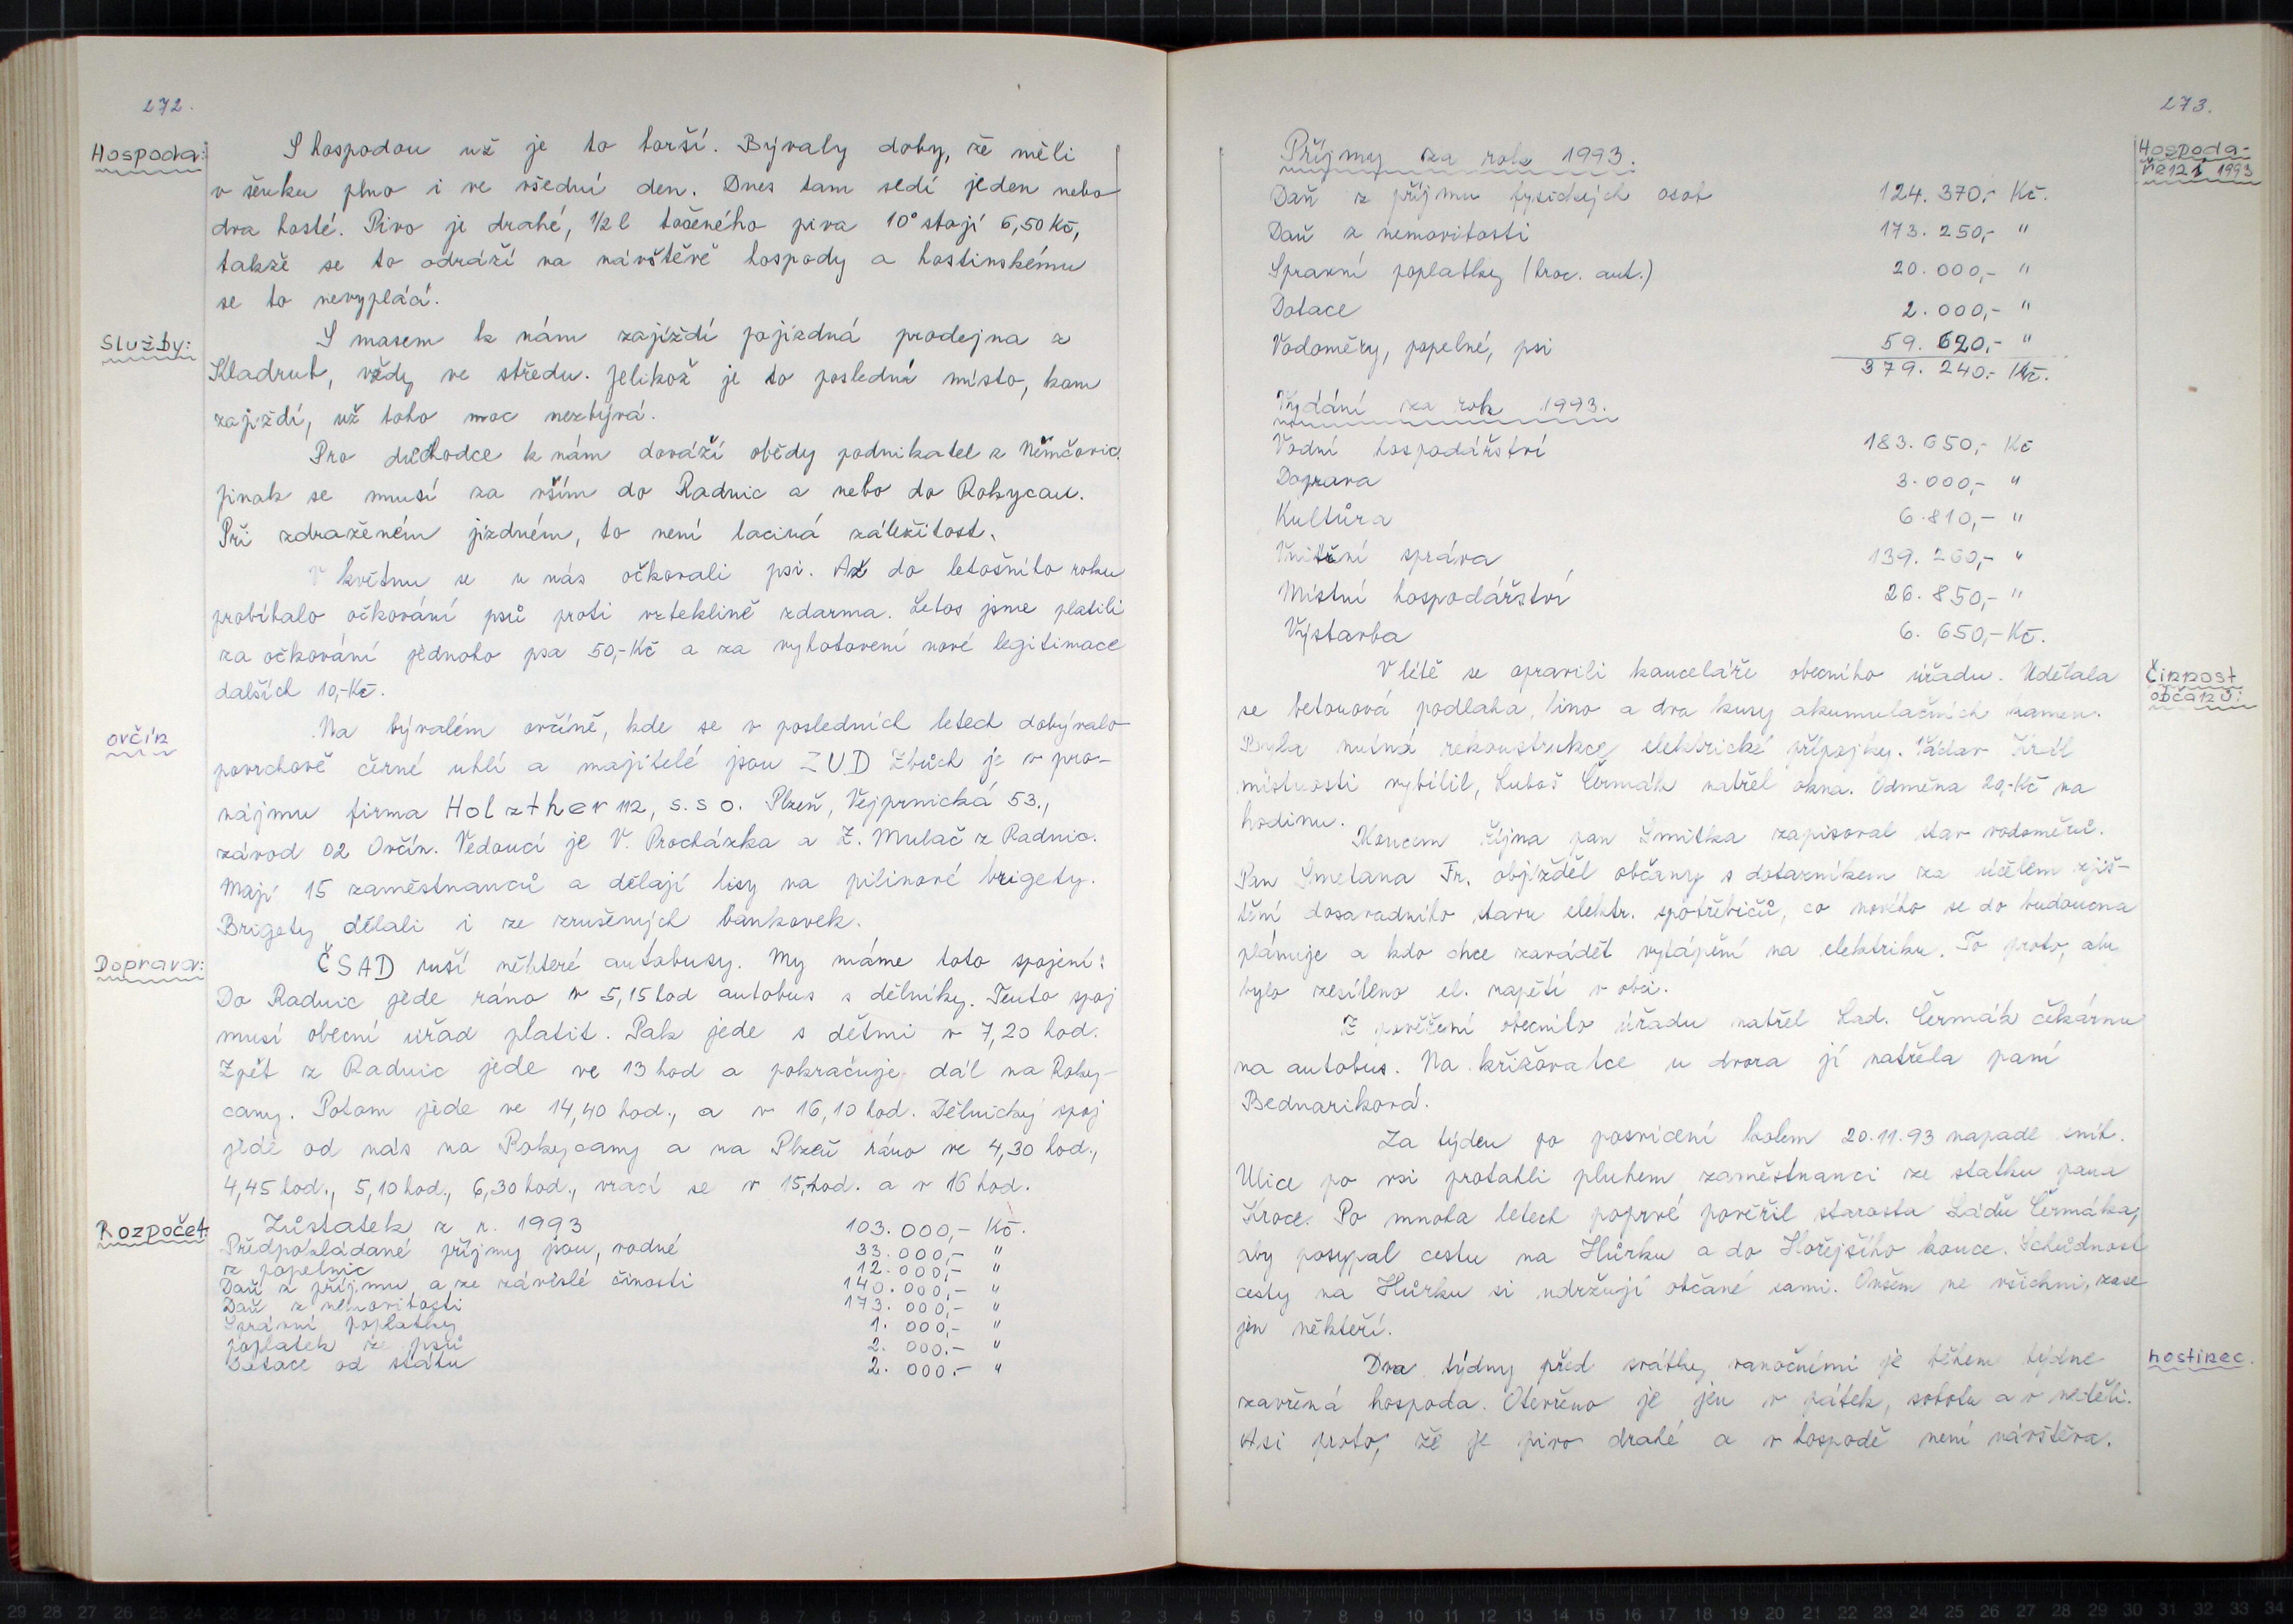 272.
Hospoda:
S hospodou už je to horší. Bývaly doby, že měli
v šenku plno i ve všední den. Dnes tam sedí jeden nebo
dva hosté. Pivo je drahé, 1/2 l točeného piva 10° stojí 6,50 Kč,
takže se to odráží na návštěvě hospody a hostinskému
se to nevyplácí.
Služby:
S masem k nám zajíždí pojízdná prodejna z
Kladrub, vždy ve středu. Jelikož je to poslední místo, kam
zajíždí, už toho moc nezbývá.
Pro důchodce k nám dováží obědy podnikatel z Němčovic.
Jinak se musí za vším do Radnic a nebo do Rokycan.
Při zdraženém jízdném, to není laciná záležitost.
V květnu se u nás očkovali psi. Až do letošního roku
probíhalo očkování psů proti vzteklině zdarma. Letos jsme platili
za očkování jednoho psa 50,-Kč a za vyhotovení nové legitimace
dalších 10,-Kč.
ovčín
Na bývalém ovčíně, kde se v posledních letech dobývalo
povrchově černé uhlí a majitelé jsou ZUD Zbůch je v pro-
nájmu firma Holztherm, s.s o. Plzeň, Vejprnická 53.,
závod 02 Ovčín. Vedoucí je V. Procházka a Z. Mulač z Radnic.
Mají 15 zaměstnanců a dělají lisy na pilinové brigety.
Brigety dělali i ze zrušených bankovek.
Doprava:
ČSAD ruší některé autobusy. My máme toto spojení:
Do Radnic jede ráno v 5,15 hod autobus s dělníky. Tento spoj
musí obecní úřad platit. Pak jede s dětmi v 7,20 hod.
Zpět z Radnic jede ve 13 hod a pokračuje dál na Roky-
cany. Potom jede ve 14,40 hod., a v 16,10 hod. Dělnický spoj
jede od nás na Rokycany a na Plzeň ráno ve 4,30 hod.,
4,45 hod., 5,10 hod., 6,30 hod., vrací se v 15,hod. a v 16 hod.
Rozpočet:
Zůstatek z r. 1993 103.000,- Kč.
Předpokládané příjmy jsou, vodné 33.000,- "
z popelnic 12.000,- "
Daň z příjmu a ze závislé činosti 140.000,- "
Daň z nemovitosti 173.000,- "
Správní poplatky 1.000,- "
poplatek ze psů 2.000.- "
Dotace od státu 2.000.- "
273.
Hospoda-
ření 1993
Příjmy za rok 1993.
Daň z příjmu fysických osob 124.370,- Kč.
Daň z nemovitosti 173.250,- "
Spravní poplatky (hrac. aut.) 20.000,- "
Dotace 2.000,- "
Vodoměry, popelné, psi 59.620,- "
379.240.- Kč.
Vydání za rok 1993.
Vodní hospodářství 183.650,- Kč
Doprava 3.000,- "
Kultůra 6.810,- "
Vnitřní správa 139.260,- "
Místní hospodářství 26.850,- "
Výstavba 6.650,- Kč.
Činnost
občanů:
V létě se opravili kanceláře obecního úřadu. Udělala
se betonová podlaha, lino a dva kusy akumulačních kamen.
Byla nutná rekonstrukce elektrické přípojky. Václav Král
místnosti vybílil, Luboš Čermák natřel okna. Odměna 20,-Kč na
hodinu.
Koncem října pan Smitka zapisoval stav vodoměrů.
Pan Smetana Fr. objížděl občany s dotazníkem za účelem zjiš-
tění dosavadního stavu elektr. spotřebičů, co nového se do budoucna
plánuje a kdo chce zavádět vytápění na elektriku. To proto, aby
bylo zesíleno el. napětí v obci.
Z pověření obecního úřadu natřel Lad. Čermák čekárnu
na autobus. Na křižovatce u dvora jí natřela paní
Bednariková.
Za týden po posvícení kolem 20.11.93 napadl sníh.
Ulice po vsi protahli pluhem zaměstnanci ze statku pana
Kroce. Po mnoha letech poprvé pověřil starosta Láďu Čermáka,
aby posypal cestu na Hůrku a do Hořejšího konce. Schůdnost
cesty na Hůrku si udržují občané sami. Ovšem ne všichni, zase
jen někteří.
hostinec.
Dva týdny před svátky vanočnémi je během týdne
zavřená hospoda. Otevřeno je jen v pátek, sobotu a v neděli.
Asi proto, že je pivo drahé a v hospodě není návštěva.